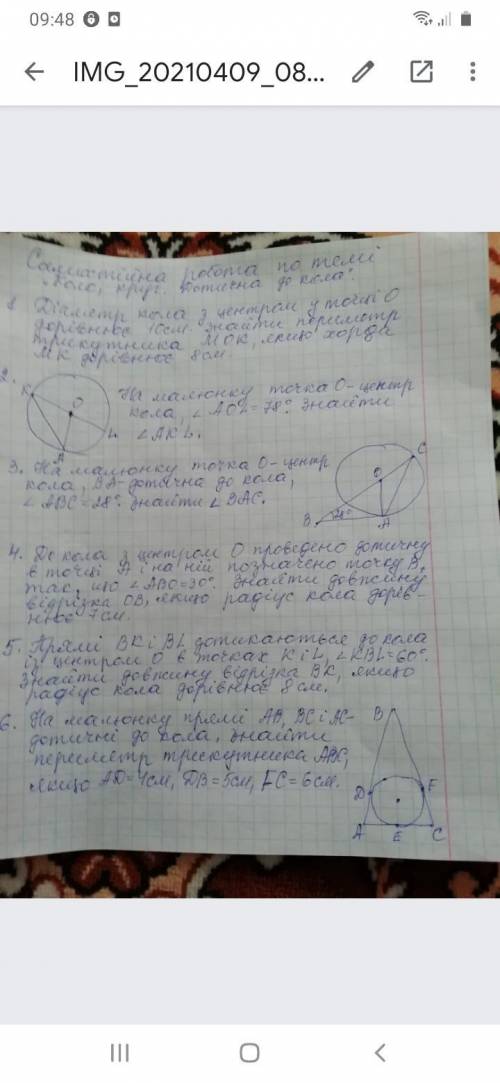 09:48
IMG_20210409_08...
Самостійна робота по темі
"Коло, круг. Дотична до кола".
1. Діаметр кола з центром у точці О
дорівнює 10см. Знайти периметр
трикутника МОК, якщо хорда
МК дорівнює 8см.
2. На малюнку точка О-центр
кола, ∠AOL=78°. Знайти
∠AKL.
K
O
L
A
3. На малюнку точка О-центр
кола, ВА-дотична до кола,
∠ABC=28°. Знайти ∠BAC.
C
O
B
28°
A
4. До кола з центром О проведено дотичну
в точці А і на ній позначено точку В,
так, що ∠ABO=30°. Знайти довжину
відрізка ОВ, якщо радіус кола дорів-
нює 7см.
5. Прямі BK і BL дотикаються до кола
із центром О в точках K і L, ∠KBL=60°.
Знайти довжину відрізка BK, якщо
радіус кола дорівнює 8см.
6. На малюнку прямі AB, BC і AC-
дотичні до кола, знайти
периметр трикутника ABC,
якщо AD=4см, DB=5см, FC=6см.
B
D
F
A
E
C